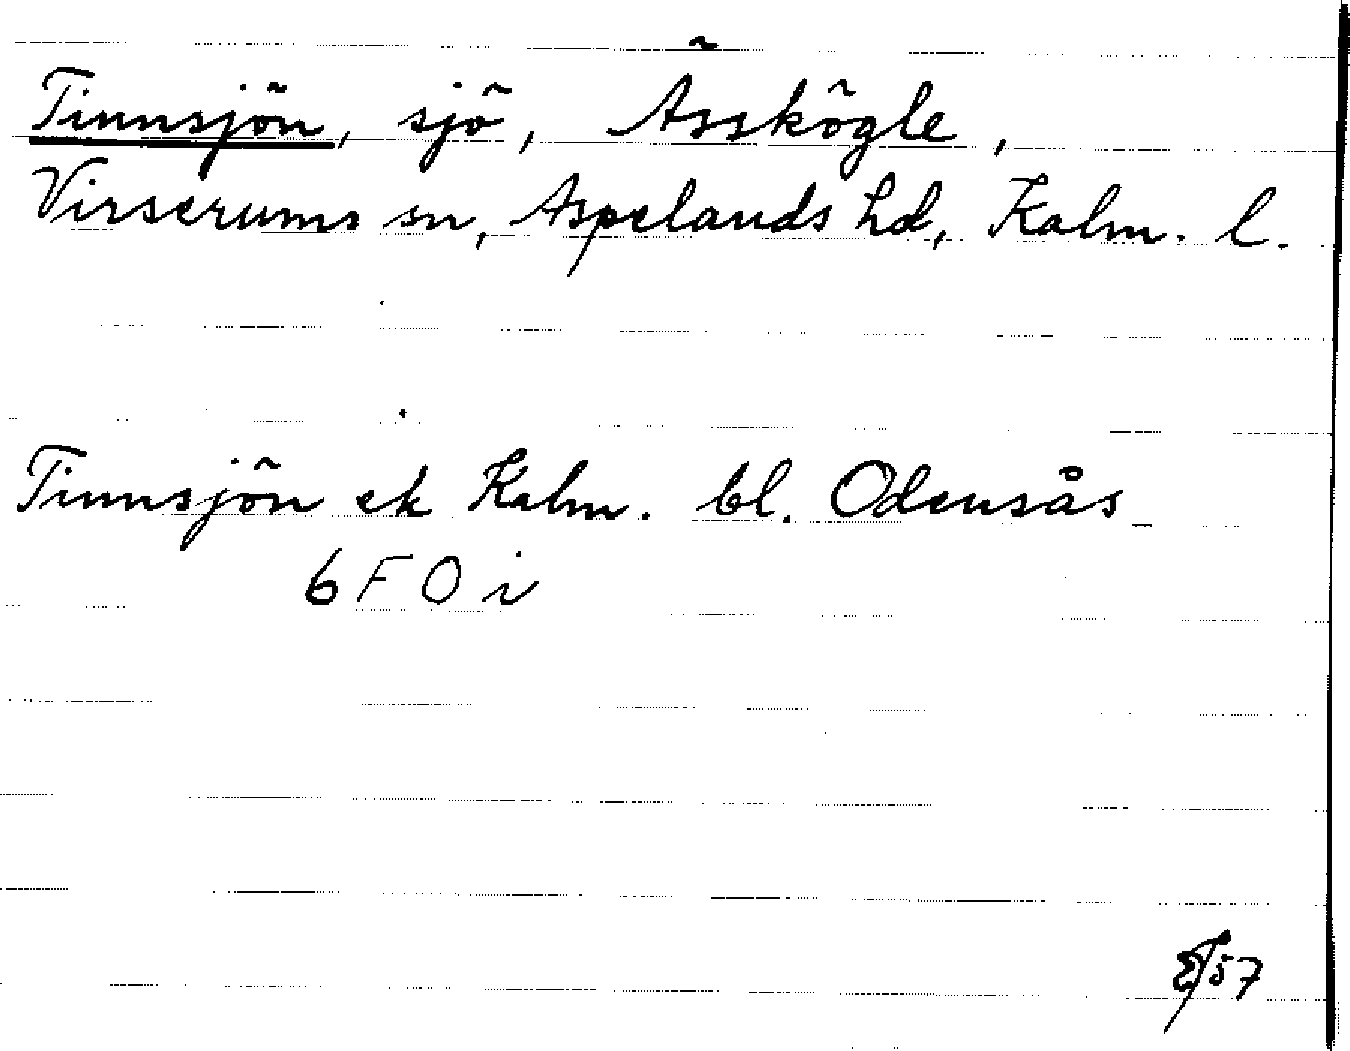 Tinnsjön, sjö, Ässkögle,
Virserums sn, Aspelands hd, Kalm. l.
Tinnsjön ek Kalm. bl. Odensås
6 F 0 i
57